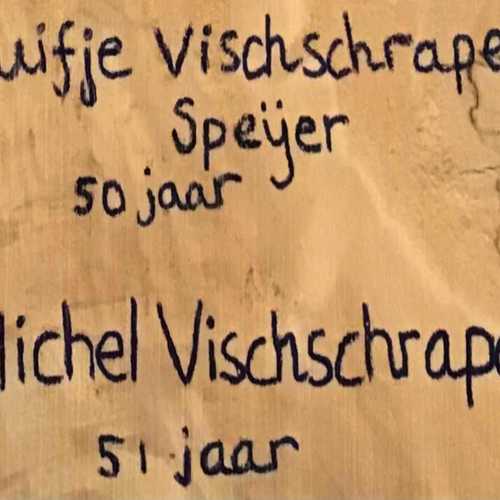 uifje Vischschrape
Speÿer
50 jaar
Michel Vischschrape
51 jaar